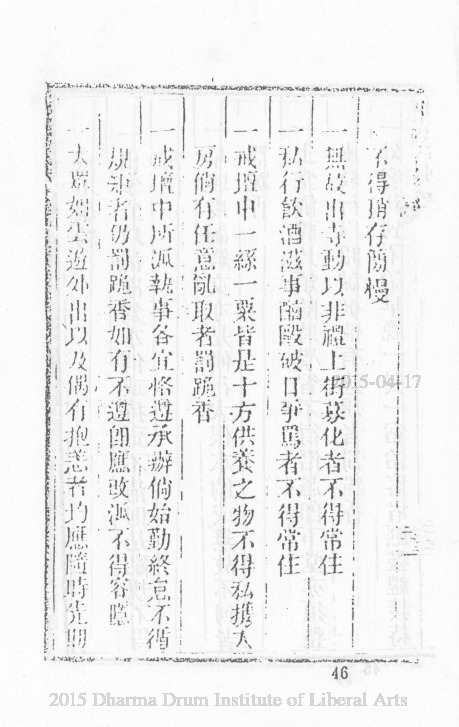 不得稍存傲慢
一無故出寺動以非禮上街募化者不得常住
一私行飲酒滋事鬭毆破口爭罵者不得常住
一戒壇中一絲一粟皆是十方供養之物不得私攜入
房倘有任意亂取者罰跪香
一戒壇中所派執事各宜恪遵承辦倘始勤終怠不循
規矩者仍罰跪香如有不遵即應改派不得容隱
一大眾如雲遊外出以及偶有抱恙者均應隨時先期
2015-04-17
46
2015 Dharma Drum Institute of Liberal Arts